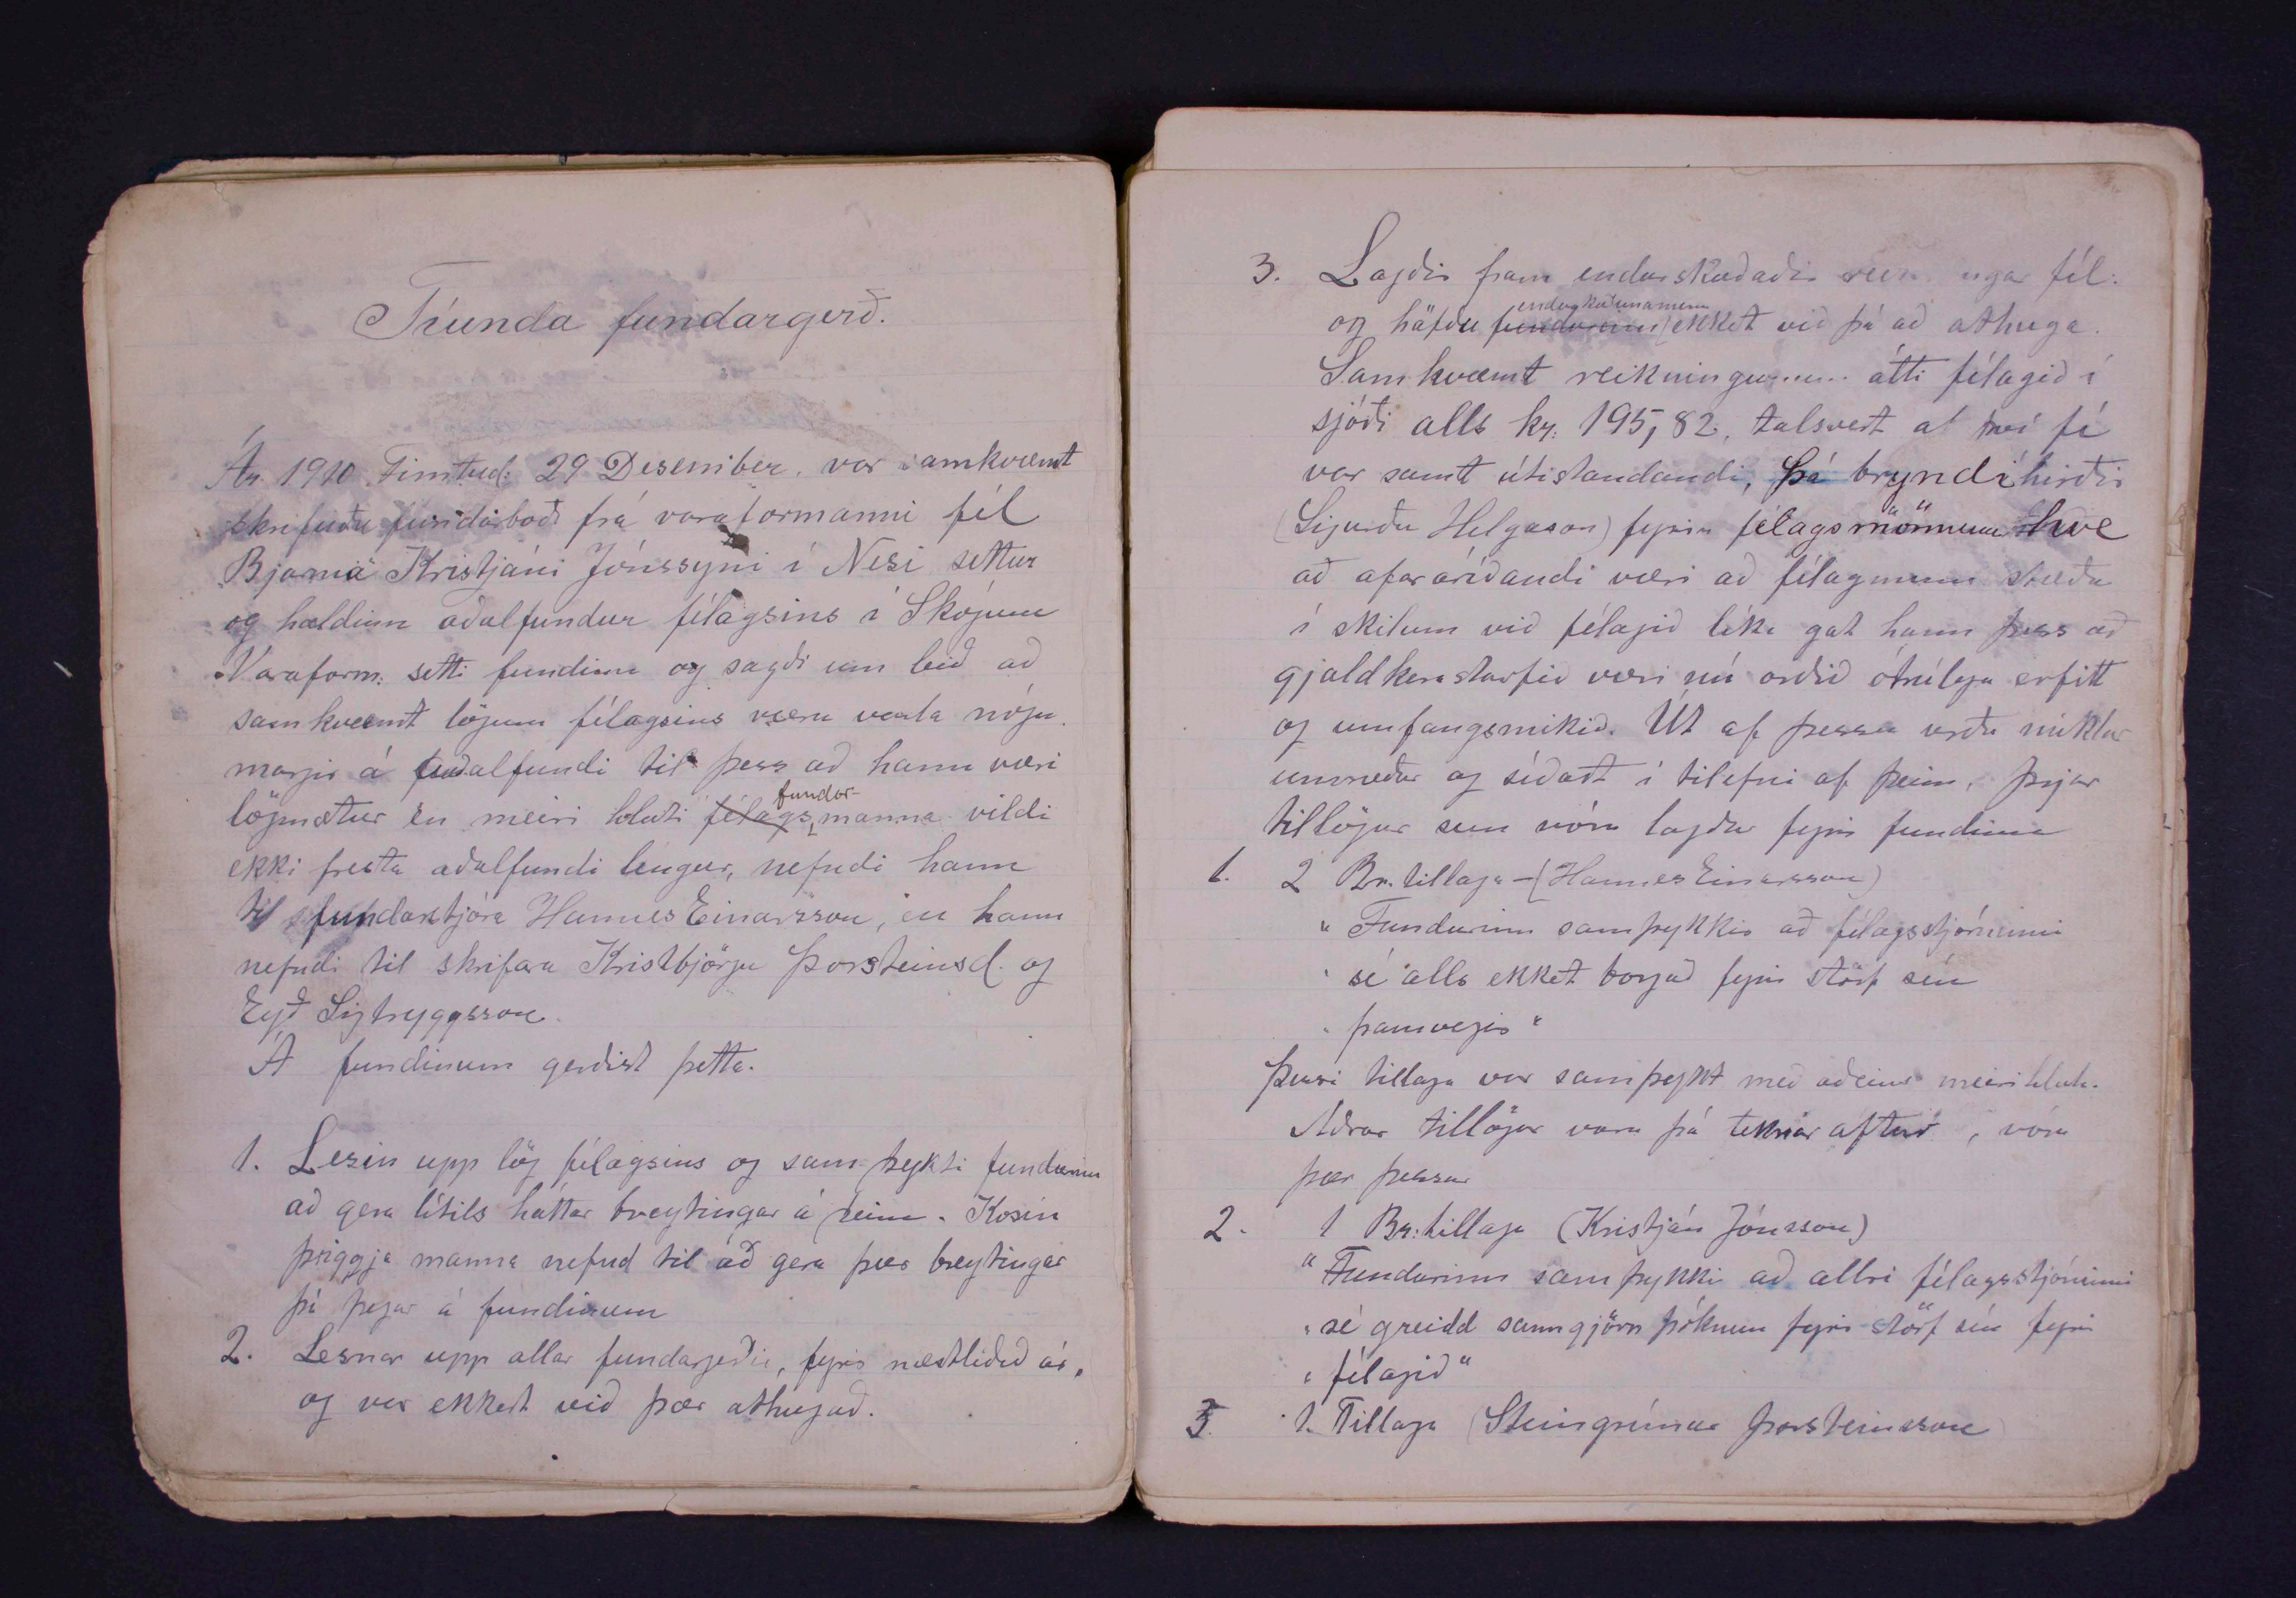 Tíunda fundargerð.
Ár 1910 Fimtud: 29 Desember. var samkvæmt
skrifuðu fundarboði frá varaformanni fél
Bjarna Kristjáni Jónssyni í Nesi settur
og haldinn aðalfundur félagsins í Skógum
Varaform: setti fundinn og sagði um leið að
samkvæmt lögum félagsins væru varla nógu
margir á aðalfundi til þess að hann væri
lögmætur en meiri hluti félags fundar-manna vildi
ekki fresta aðalfundi lengur, nefndi hann
til fundarstjóra Hannes Einarsson, en hann
nefndi til skrifara Kristbjörgu Þorsteinsd. og
Eyð Sigtryggsson.
Á fundinum gerðist þetta.
1. Lesin upp lög félagsins og sam-þykti fundurinn
að gera lítils háttar breytingar á þeim. Kosin
þriggja manna nefnd til að gera þær breytingar
þá þegar á fundinum
2. Lesnar upp allar fundargerðir, fyrir næstliðið ár,
og var ekkert við þær athugað.
3. Lagðir fram endurskoðaðir reikningar fél:
og höfðu fundurinn endurskoðunamenn ekket við þá að athuga.
Samkvæmt reikningunum átti félagið í
sjóði alls kr: 195,82. talsvert af því fé
var samt útistandandi, Þá brýndi hirðir
(Sigurður Helgason) fyrir félagsmönnum hve
að afar áríðandi væri að félagmenn stæðu
í skilum við félagið líka gat hann þess að
gjaldkerastarfið væri nú orðið ótrúlega erfitt
og umfangsmikið. Út af þessu urðu miklar
umræður og síðast í tilefni af þeim, þrjár
tillögur sem vóru lagðar fyrir fundinn
1. 2 Br. tillaga - (Hannes Einarsson)
" Fundurinn samþykkir að félagsstjórninni
" sé alls ekket borgað fyrir störf sín
" framvegis "
Þessi tillaga var samþykt með aðeins meirihlut.
Aðrar tillögur voru þá teknar aftur, vóru
þær þessar
2. 1 Br: tillaga (Kristján Jónsson)
" Fundurinn samþykkir að allri félagsstjórninni
" sé greidd sanngjörn þóknun fyrir störf sín fyrir
" félagið "
3. 1. Tillaga (Steingrímur Þorsteinsson